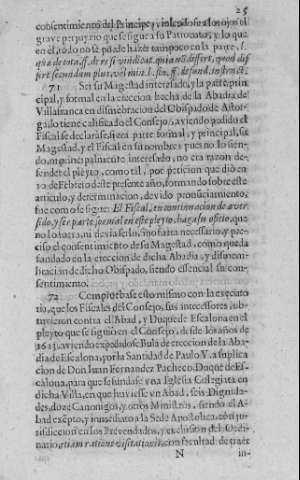 25
consentimiento del Principe; y viendose a los ojos el
grave perjuyzio que se sigue a su Patronato; y lo que
en el todo no se puede hazer tampoco en la parte, l.
quæ de tota, ff. de rei vindicat.
71 Ser su Magestad interesado, y la parte prin-
cipal, y formal en la ereccion hecha de la Abadia de
Villafranca en dismembracion del Obispado de Astor-
ga, lo tiene calificado el Consejo, aviendo pedido el
Fiscal se declarasse, sera parte formal, y principal, su
Magestad, y el Fiscal en su nombre; pues no lo sien-
do, ni principalmente interesado, no era razon de-
fender el pleyto, como tal, por peticion que diò en
10. de Febrero deste presente año, formando sobre este
articulo, y determinacion, devido pronunciamiento;
fue como se sigue: El Fiscal, en continuacion de aver
sido, y ser parte formal en este pleyto, haga su oficio, que
no lo haria, ni devia serlo, sino fuera necessario, y pre-
ciso el consentimiento de su Magestad, como queda
fundado en la ereccion de dicha Abadia, y dismem-
bracion de dicho Obispado, siendo essencial su con-
sentimiento.
72 Compruebase esto mismo con la executo-
ria, que los Fiscales del Consejo, sus antecessores, ob-
tuvieron contra el Abad, y Duque de Escalona en el
pleyto que se siguiò en el Consejo, desde los años de
aviendo expedidose Bula de ereccion de la Aba-
dia de Escalona, por la Santidad de Paulo V. a suplica-
cion de Don Juan Fernandez Pacheco, Duque de Es-
calona, para que se fundasse vna Iglesia Colegiata en
dicha Villa, en que huviesse vn Abad, seis Dignida-
des, doze Canonigos, y otros Ministros, siendo el A-
bad exempto, y inmediato a la Sede Apostolica, con ju-
risdiccion en los Prevendados, y exclusion del Ordi-
nario, etiam ratione visitationis, con facultad de traer
N in-